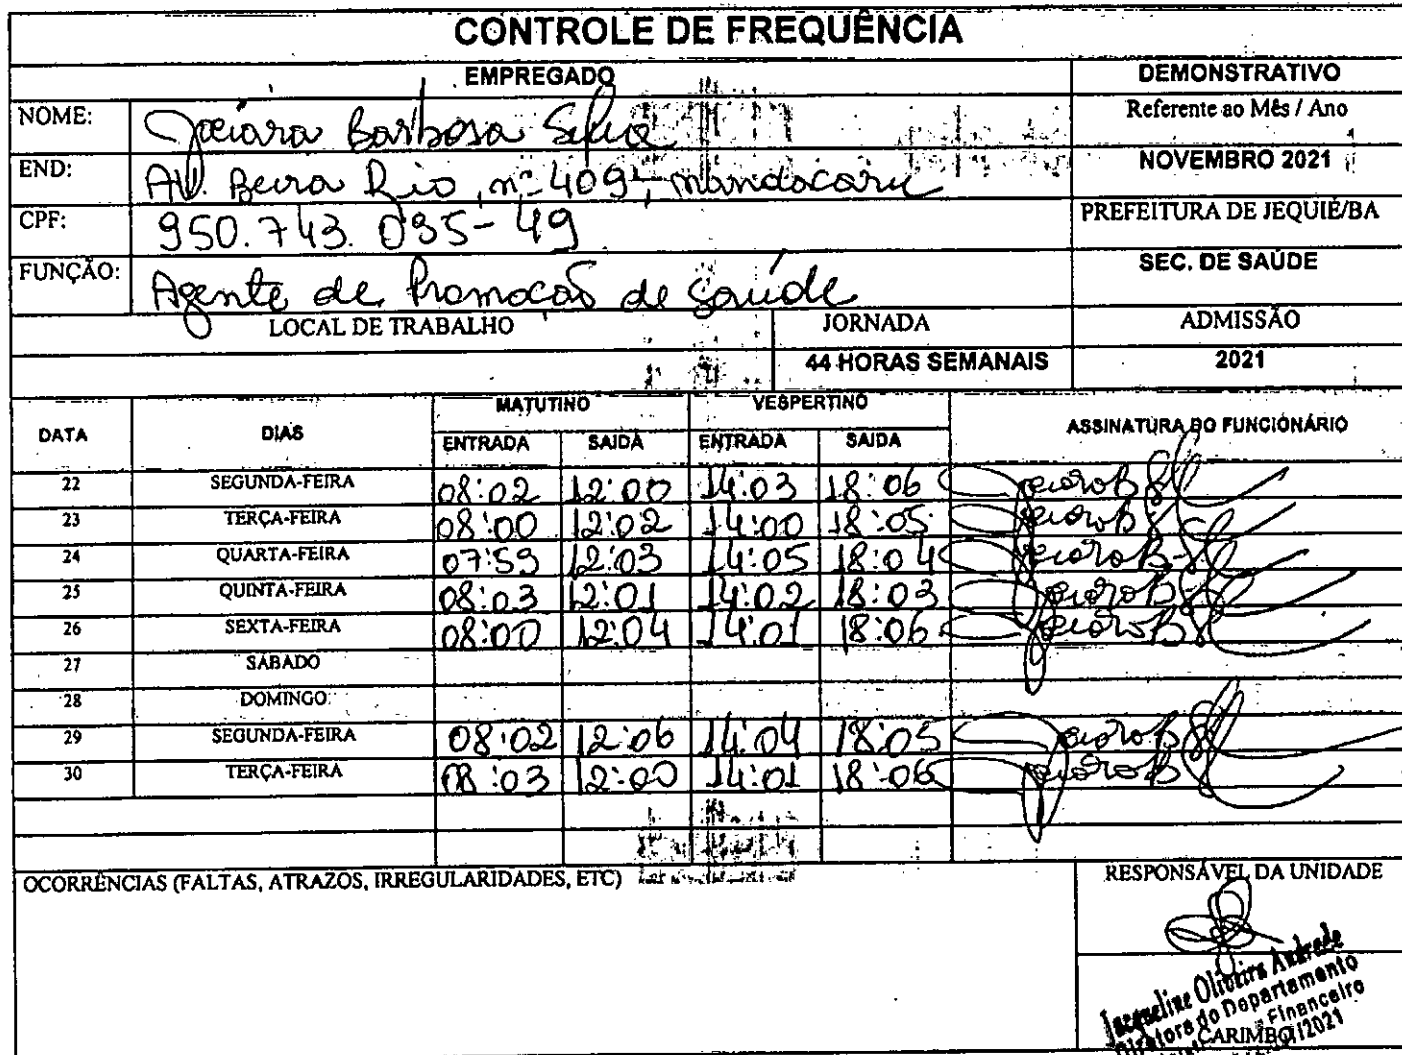 CONTROLE DE FREQUÊNCIA
EMPREGADO
DEMONSTRATIVO
NOME: Barbosa Silva
Referente ao Mês / Ano
END: AV. Beira Rio, nº 409, mandacaru
NOVEMBRO 2021
CPF: 950.743.035-49
PREFEITURA DE JEQUIÉ/BA
FUNÇÃO: Agente de Promoção de Saúde
SEC. DE SAÚDE
LOCAL DE TRABALHO JORNADA ADMISSÃO
44 HORAS SEMANAIS 2021
DATA DIAS MATUTINO VESPERTINO ASSINATURA DO FUNCIONÁRIO
ENTRADA SAIDA ENTRADA SAIDA
22 SEGUNDA-FEIRA 08:02 12:00 14:03 18:06
23 TERÇA-FEIRA 08:00 12:02 14:00 18:05
24 QUARTA-FEIRA 07:59 12:03 14:05 18:04
25 QUINTA-FEIRA 08:03 12:01 14:02 18:03
26 SEXTA-FEIRA 08:00 12:04 14:01 18:06
27 SÁBADO
28 DOMINGO
29 SEGUNDA-FEIRA 08:02 12:06 14:04 18:05
30 TERÇA-FEIRA 08:03 12:00 14:01 18:06
OCORRÊNCIAS (FALTAS, ATRAZOS, IRREGULARIDADES, ETC)
RESPONSÁVEL DA UNIDADE
Jacqueline Oliveira Andrade
Diretora do Departamento
Financeiro
CARIMBO